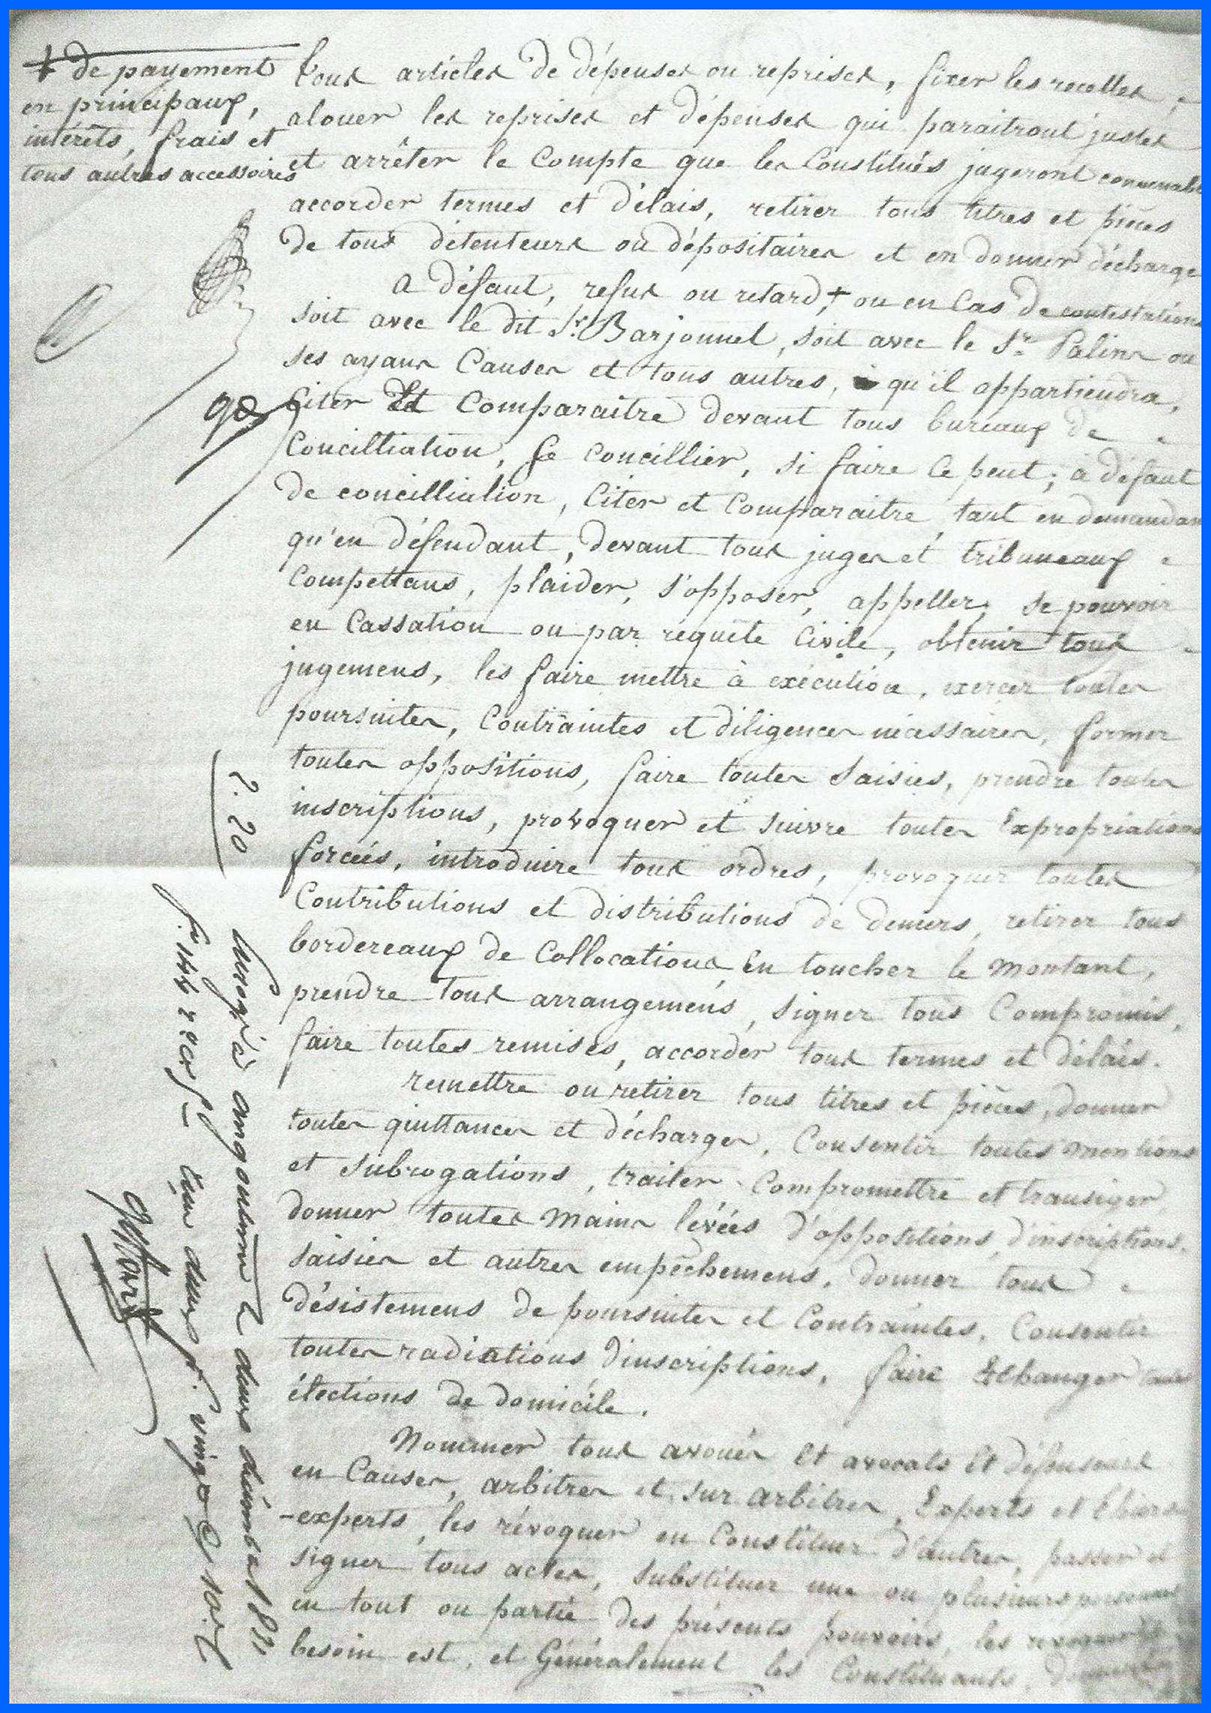 + de payement
en principaux,
intérêts, frais et
tous autres accessoires
tous articles de dépenses ou reprises, fixer les recettes,
alouer les reprises et dépenses qui paraitront justes
et arrêter le Compte que les Constitués jugeront convenable
accorder termes et délais, retirer tous titres et pièces
de tous détenteurs ou dépositaires et en donner décharge
A défaut, refus ou retard + ou en Cas de contestations
soit avec le dit Sr. Barjonnel, soit avec le Sr. Palins ou
ses ayans Causes et tous autres, qu'il appartiendra,
Citer Et Comparaitre devant tous bureaux de
Concilliation, se concillier, si faire Ce peut; à défaut
de concilliation, Citer et Comparaitre, tant en demandant
qu'en défendant, devant tous juges et tribuneaux
Compettans, plaider, s'opposer, appeller, se pouvoir
en Cassation ou par requête Civile, obtenir tous
jugemens, les faire mettre à exécution, exercer toutes
poursuites, Contraintes et diligences nécessaires, former
toutes oppositions, faire toutes Saisies, prendre toutes
inscriptions, provoquer et suivre toutes Expropriations
forcées, introduire tous ordres, provoquer toutes
Contributions et distributions de deniers, retirer tous
bordereaux de Collocations En toucher le montant,
prendre tous arrangemens, signer tous Compromis,
faire toutes remises, accorder tous termes et délais.
remettre ou retirer tous titres et pièces, donner
toutes quittances et décharges, Consentir toutes mentions
et subrogations, traiter Compromettre et transiger
donner toutes mains levées d'oppositions, d'inscriptions,
saisies et autres empêchemens, donner tous
désistemens de poursuites et Contraintes, Consentir
toutes radiations d'inscriptions, faire Et Changer toutes
élections de domicile.
Nommer tous avoués Et avocats Et défenseurs
en Causes, arbitres et sur arbitres, Experts et thiers
-experts, les révoquer en Constituer d'autres, passer et
signer tous actes, substituer une ou plusieurs personnes
en tout ou partie des présents pouvoirs, les
besoin est, et Généralement les Constituants
2. 20
à angoulême le deux
deux f. vingt